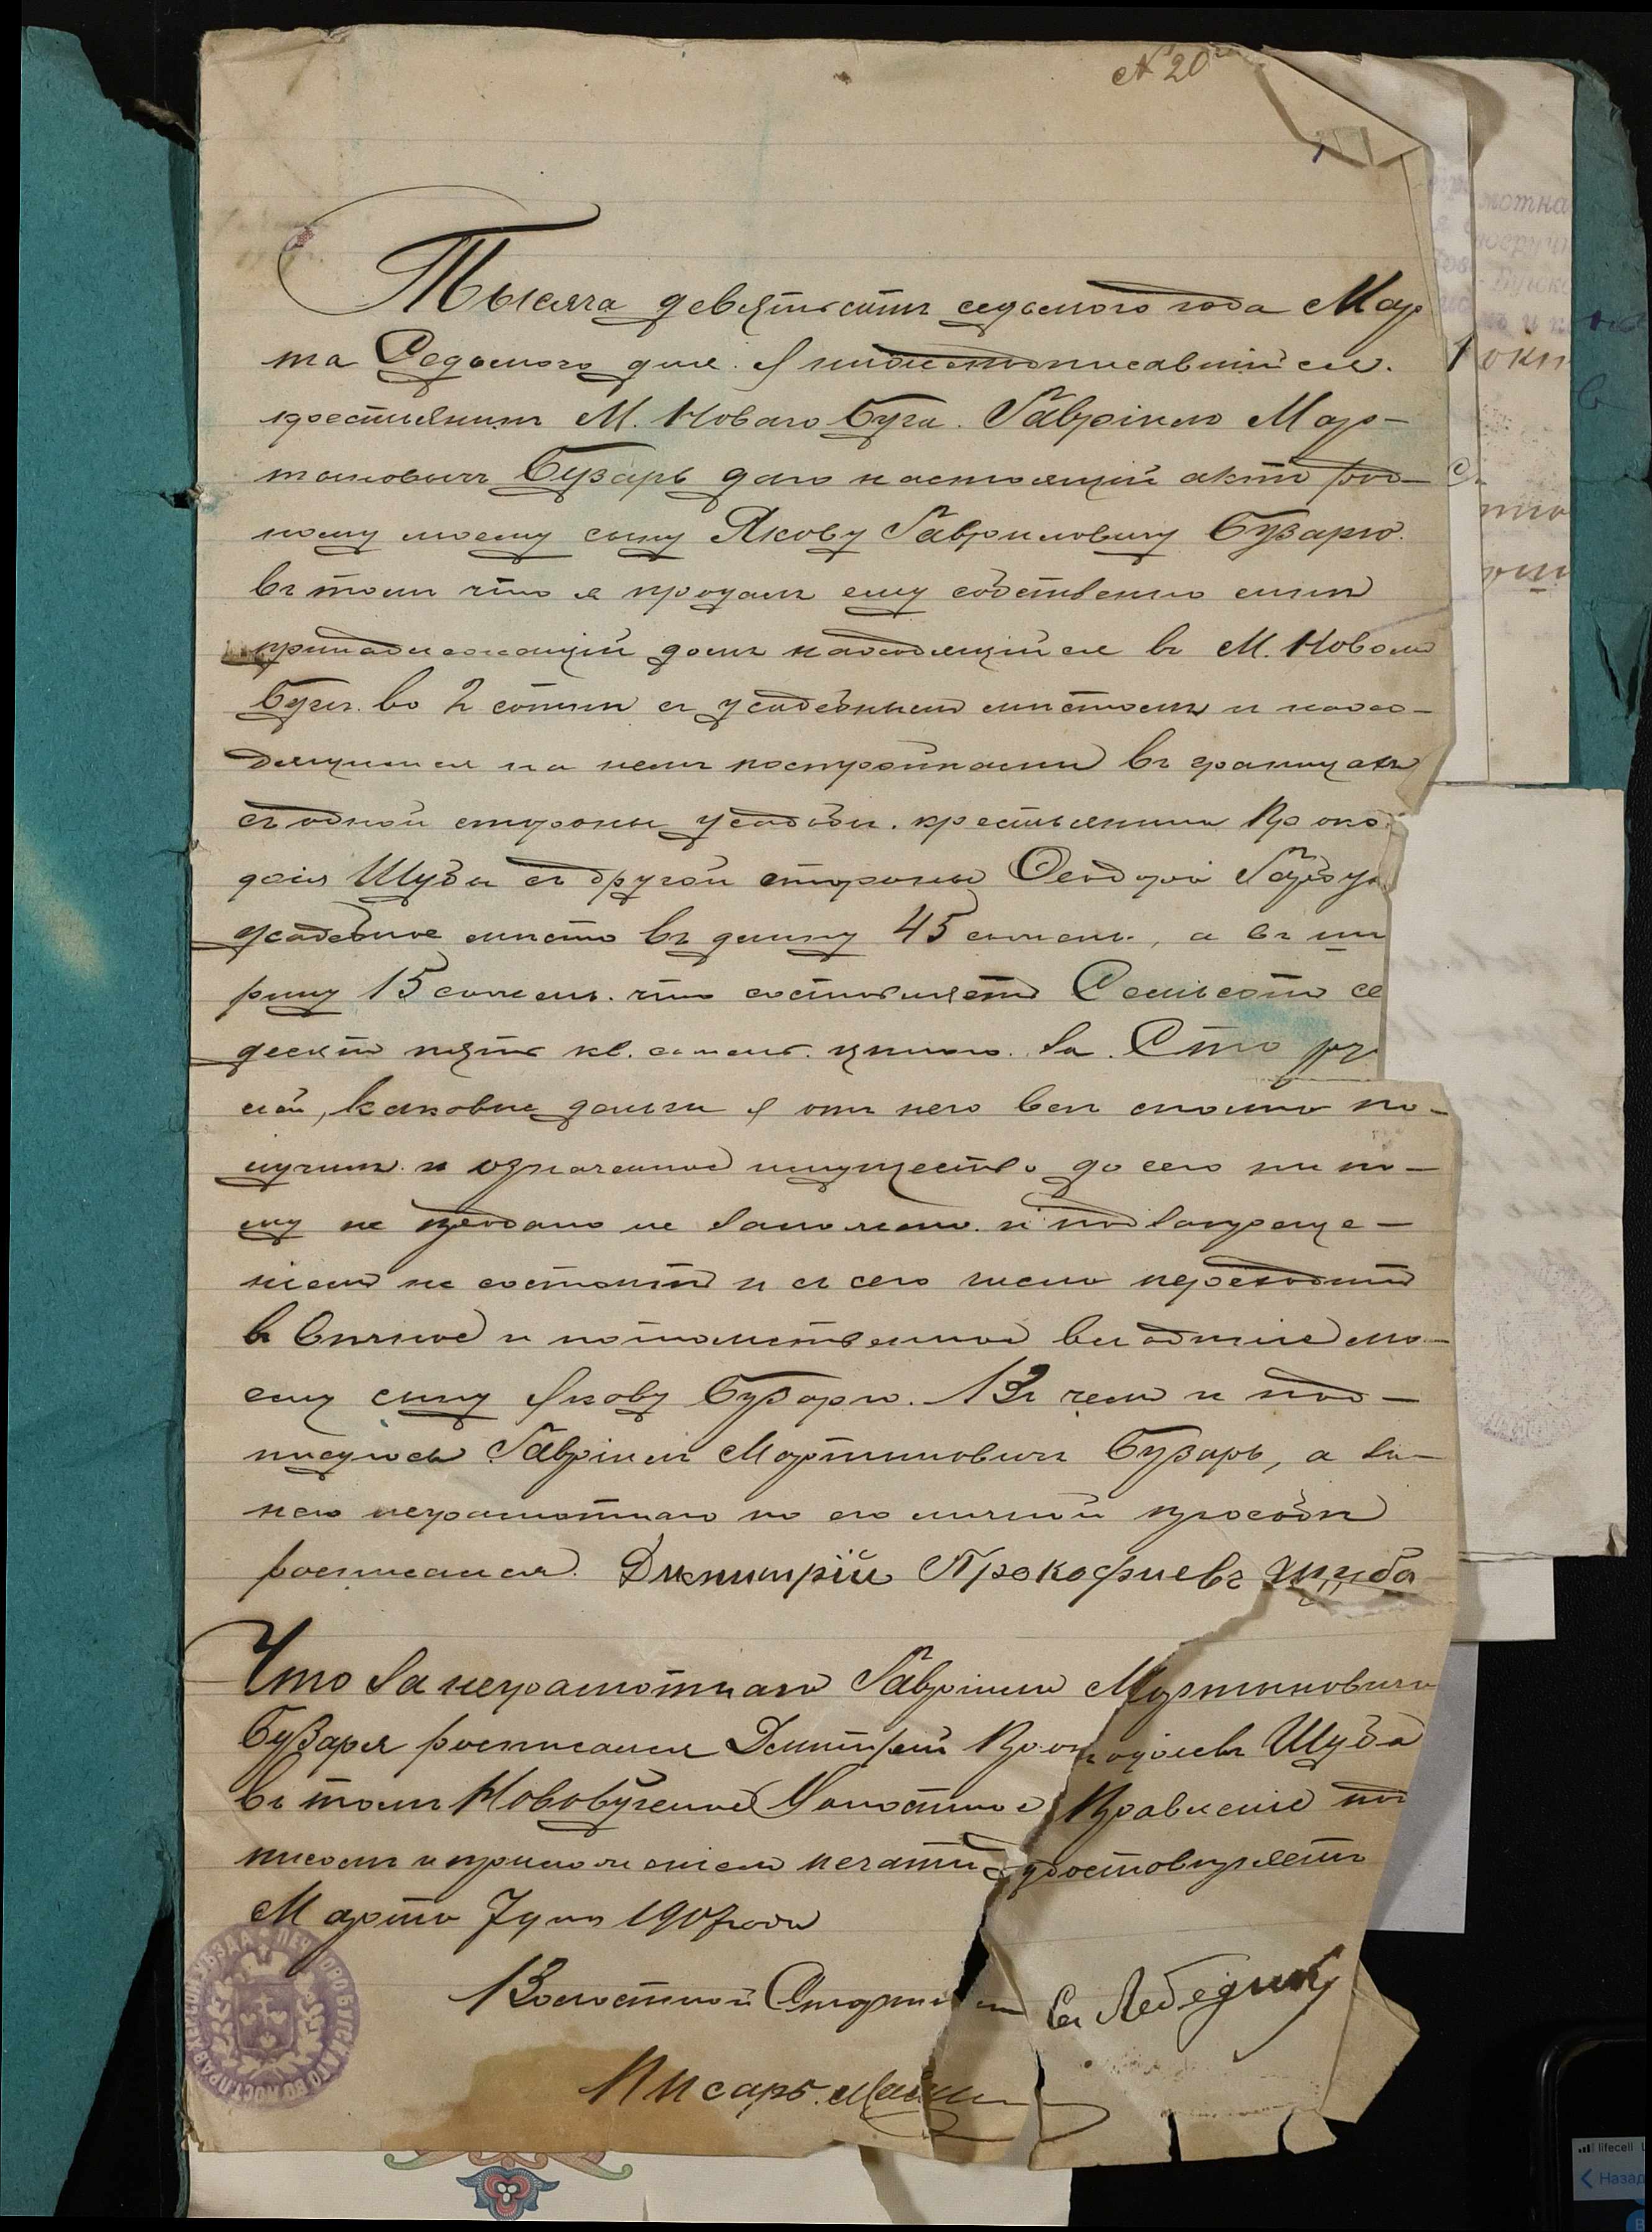 № 20
Тысяча девятьсотъ седьмого года Мар
та Седьмого дня. Я нижеподписавшійся.
крестьянинъ М. Новаго Буга. Гавріилъ Мар-
тиновичъ Бузарь даю настоящій актъ род-
ному моему сыну Якову Гавриловичу Бузарю.
въ томъ что я продалъ ему собственно мнѣ
принадлежащій домъ находящійся въ М. Новомъ
Бугѣ. во 2 сотнѣ съ усадебнымъ мѣстомъ и нахо-
дящимися на немъ постройками въ границахъ
съ одной стороны усадьбы. крестьянина Проко
фія Шубы съ другой стороны Ѳеодора
усадебное мѣсто въ длину 45 сажень., а въ ши
рину 15 сажень. что составляетъ Семьсотъ се
десятъ пять кв. сажень. цѣною. за. Сто ру
лей, каковыя деньги я отъ него всѣ сполна по-
лучилъ. и означенное имущество до сего ни ко-
му не продано не заложено. и подъ запреще-
ніемъ не состоитъ и съ сего числа переходитъ
въ вѣчное и потомственное владѣніе мо-
ему сыну Якову Бузарю. Въ чемъ и под-
писуюсь Гавріилъ Мартиновичъ Бузарь, а за-
него неграмотнаго по его личной просьбѣ
росписался. Димитрій Прокофиевъ Шуба
Что за неграмотнаго Гавріила Мартиновича
Бузаря росписался Димитрій Прокофіевъ Шуба
въ томъ Новобугское Волостное Правленіе под
писомъ и приложеніемъ печати удостовѣряетъ
Марта 7 дня 1907 года
Волостной Старшина Лебедин
Писарь